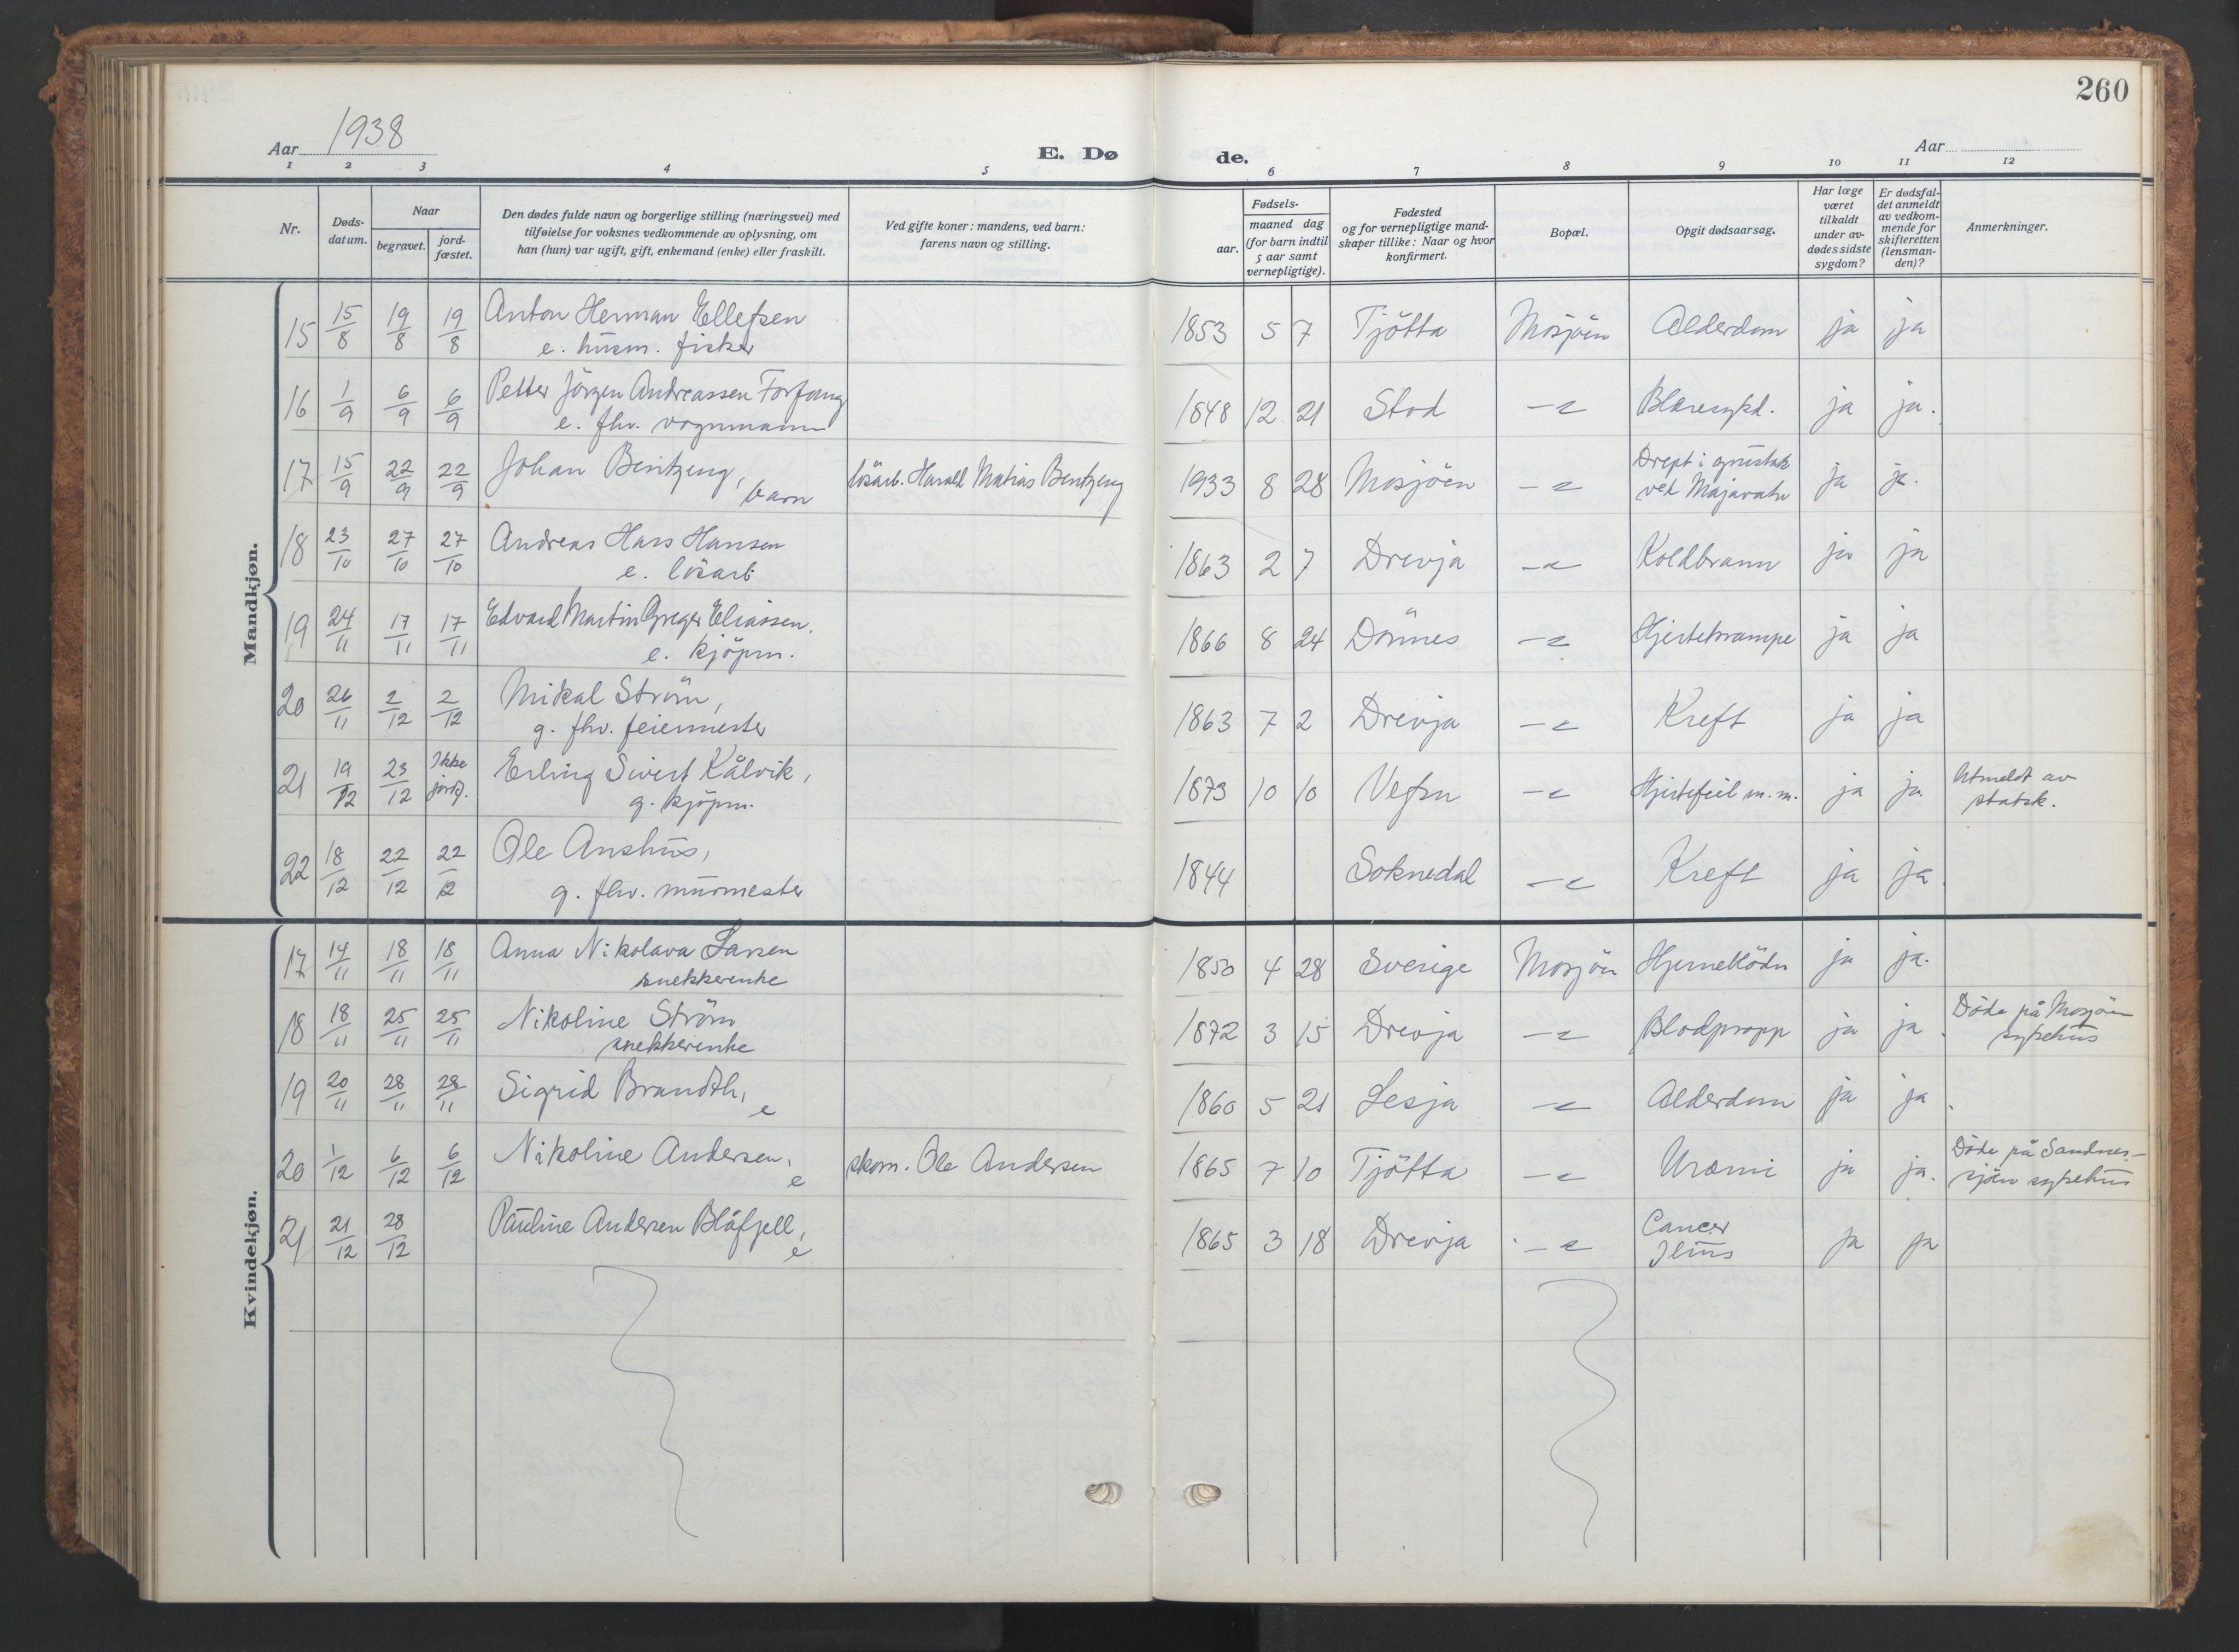 260
Aar 1938
E. Dø
de.
Aar
1 2 3 4 5 6 7 8 9 10 11 12
Nr.
Døds-
datum.
Naar
begravet.
jord-
fæstet.
Den dødes fulde navn og borgerlige stilling (næringsvei) med
tilføielse for voksnes vedkommende av oplysning, om
han (hun) var ugift, gift, enkemand (enke) eller fraskilt.
Ved gifte koner: mandens, ved barn:
farens navn og stilling.
Fødsels-
aar.
maaned dag
(for barn indtil
5 aar samt
vernepligtige).
Fødested
og for vernepligtige mand-
skaper tillike: Naar og hvor
konfirmert.
Bopæl.
Opgit dødsaarsag.
Har læge
været
tilkaldt
under av-
dødes sidste
sygdom?
Er dødsfal-
det anmeldt
av vedkom-
mende for
skifteretten
(lensman-
den)?
Anmerkninger.
Mandkjøn.
15 15/8 19/8 19/8 Anton Herman Ellefsen 1853 5 7 Tjötta Mosjöen Alderdom ja ja
e. husm. fisker
16 1/9 6/9 6/9 Petter Jörgen Andreassen Forfang 1848 12 21 Stod —"— Blæresykd. ja ja.
e. fhv. vognmann
17 15/9 22/9 22/9 Johan Bentzeng, lösarb. Harald Matias Bentzeng 1933 8 28 Mosjöen —"— Drept i grustak ja ja.
barn ved Majavatn
18 23/10 27/10 27/10 Andreas Hans Hansen 1863 2 7 Drevja —"— Koldbrann ja ja
e. lösarb.
19 24/11 17/11 17/11 Edvard Martin Greger Eliassen. 1866 8 24 Dönnes —"— Hjertekrampe ja ja
e. kjöpm.
20 26/11 2/12 2/12 Mikal Ström, 1863 7 2 Drevja —"— Kreft ja ja
g. fhv. feiermester
21 19/12 23/12 Ikke jordf. Erling Sivert Kålvik, 1873 10 10 Vefsn —"— Hjertefeil m.m. ja ja Utmeldt av
g. kjöpm. statsk.
22 18/12 22/12 22/12 Ole Anshus, 1844 Soknedal —"— Kreft ja ja.
g. fhv. murmester
Kvindekjøn.
17 14/11 18/11 18/11 Anna Nikolava Larsen 1850 4 28 Sverige Mosjöen Hjerneblödn ja ja.
snekkerenke
18 18/11 25/11 25/11 Nikoline Ström 1872 3 15 Drevja —"— Blodpropp ja ja. Döde på Mosjöen
snekkerenke sykehus
19 20/11 28/11 28/11 Sigrid Brandth, 1860 5 21 Lesja —"— Alderdom ja ja.
e
20 1/12 6/12 6/12 Nikoline Andersen, skom. Ole Andersen 1865 7 10 Tjötta —"— Uræmi ja ja. Döde på Sandnes-
e sjöen sykehus
21 21/12 28/12 Pauline Andersen Blåfjell, 1865 3 18 Drevja —"— Cancer ja ja
e Ilius